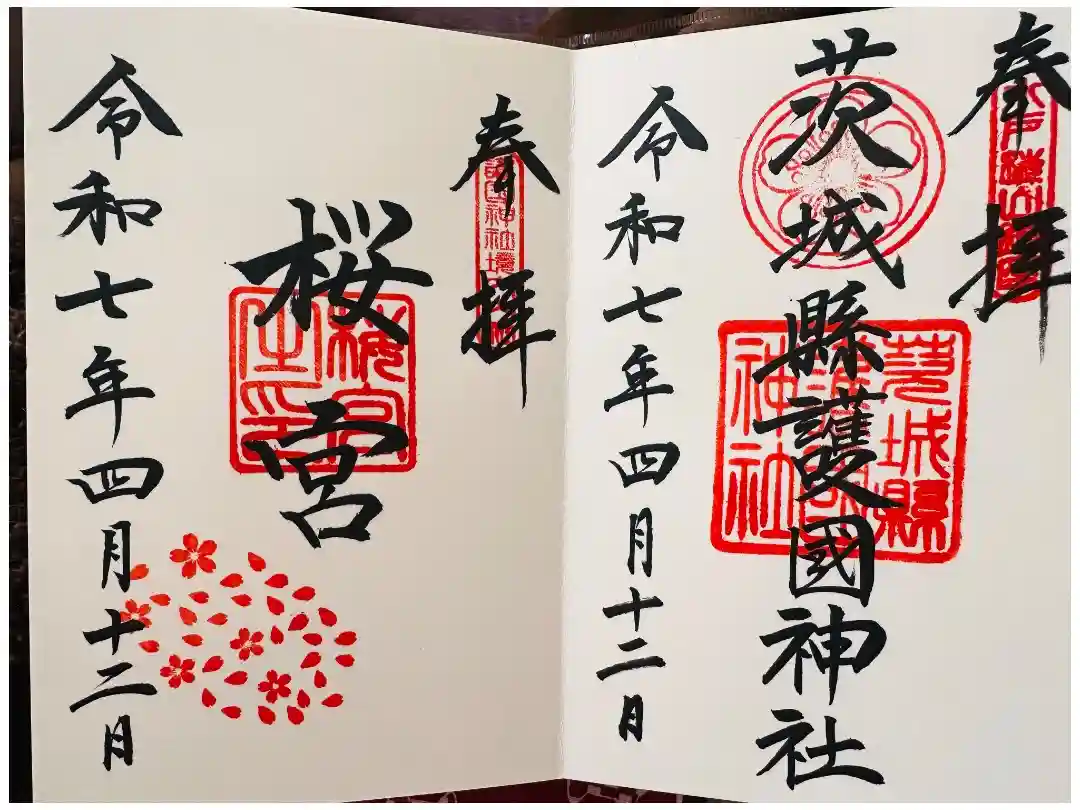 奉拝
茨城縣護國神社
茨城縣
護國
神社
令和七年四月十二日
奉拝
桜宮
桜宮
之印
令和七年四月十二日